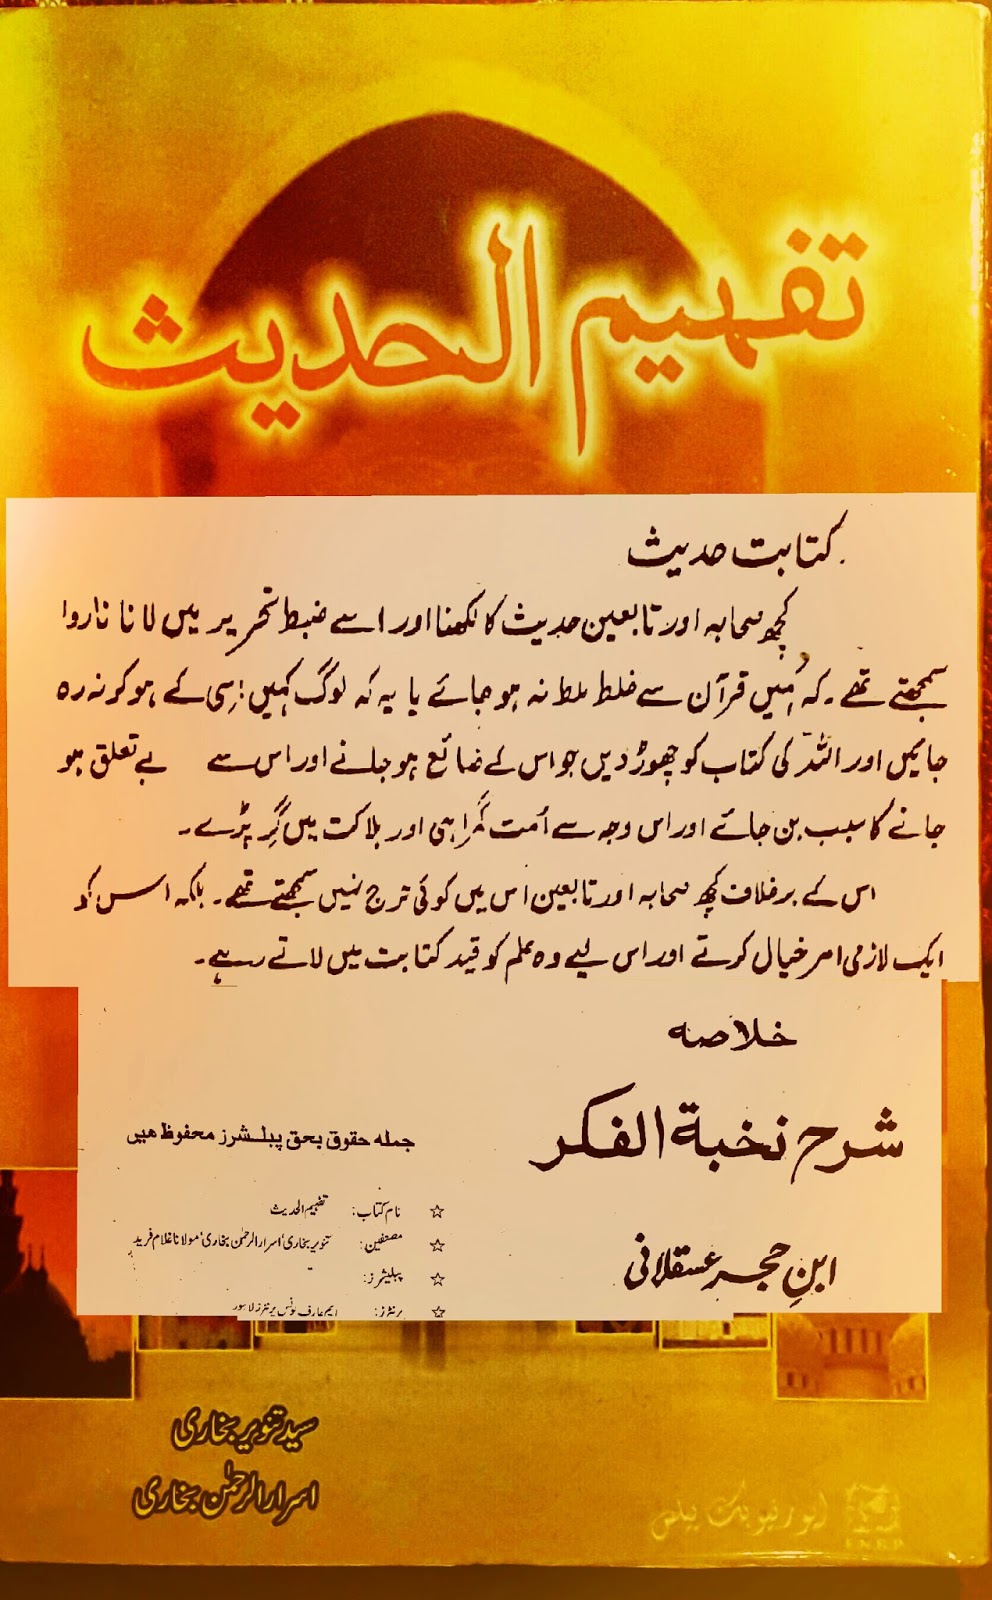 تفہیم الحدیث
کتابت حدیث
کچھ صحابہ اور تابعین حدیث کا لکھنا اور اسے ضبط تحریر میں لانا ناروا
سمجھتے تھے۔ کہ کہیں قرآن سے خلط ملط نہ ہو جائے یا یہ کہ لوگ کہیں اِسی کے ہو کر نہ رہ
جائیں اور اللہ کی کتاب کو چھوڑ دیں جو اس کے ضائع ہو جانے اور اس سے بے تعلق ہو
جانے کا سبب بن جائے اور اس وجہ سے اُمت گمراہی اور ہلاکت میں گِر پڑے۔
اس کے برخلاف کچھ صحابہ اور تابعین اس میں کوئی حرج نہیں سمجھتے تھے۔ بلکہ اس کو
ایک لازمی امر خیال کرتے اور اس لیے وہ علم کو قید کتابت میں لاتے رہے۔
خلاصہ
شرح نخبة الفکر
ابنِ حجر عسقلانی
جملہ حقوق بحق پبلشرز محفوظ ھیں
☆ نام کتاب: تفہیم الحدیث
☆ مصنفین: تنویر بخاری' اسرار الرحمٰن بخاری' مولانا غلام فرید
☆ پبلیشرز:
☆ پرنٹرز: ایم عارف یونس پرنٹرز لاہور
سید تنویر بخاری
اسرار الرحمٰن بخاری
ایور نیو بک پیلس
E.N.B.P